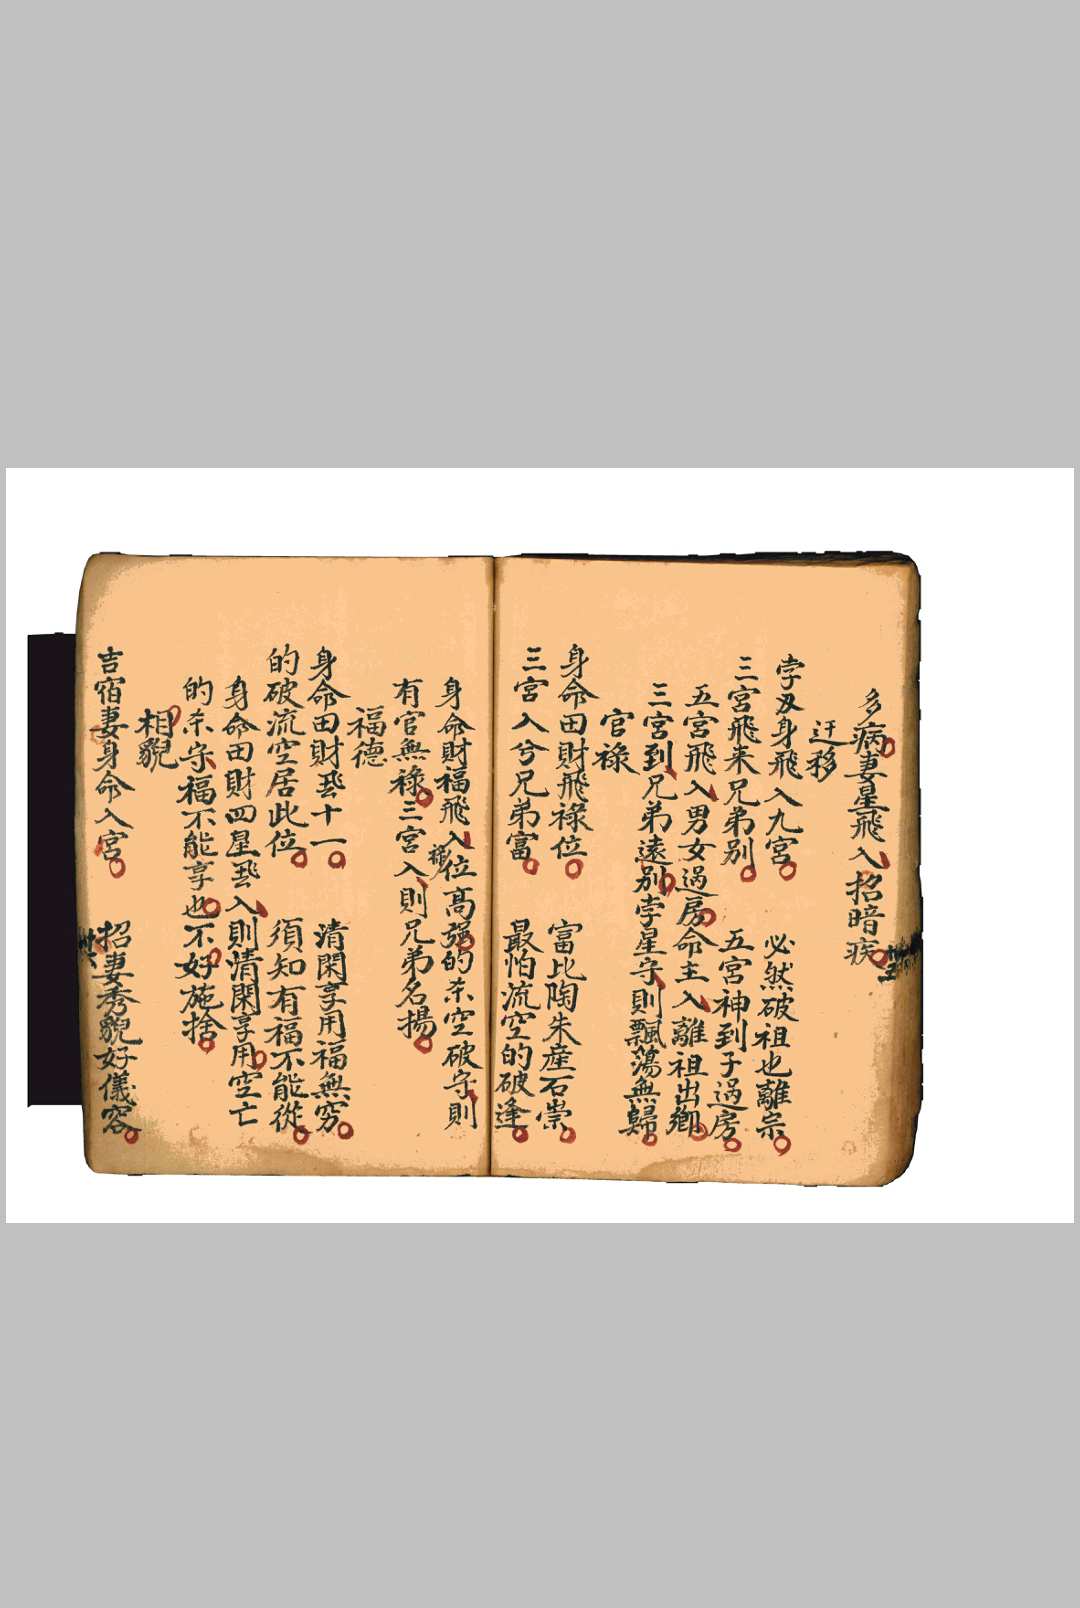 多病妻星飛入招暗疾
迁移
孛刃身飛入九宮 必然破祖也離宗
三宮飛来兄弟別 五宮神到子過房
五宮飛入男女過房命主入離祖出鄉
三宮到兄弟遠別孛星守則飄蕩無歸
官祿
身命田財飛祿位 富比陶朱産石崇
三宮入兮兄弟富 最怕流空的破逢
身命財福飛入祿位高强的杀空破守則
有官無祿三宮入則兄弟名揚
福德
身命田財飛十一 清閑享用福無窮
的破流空居此位 須知有福不能從
身命田財四星飛入則清閑享用空亡
的杀守福不能享也不好施捨
相貌
吉宿妻身命入宮 招妻秀貌好儀容